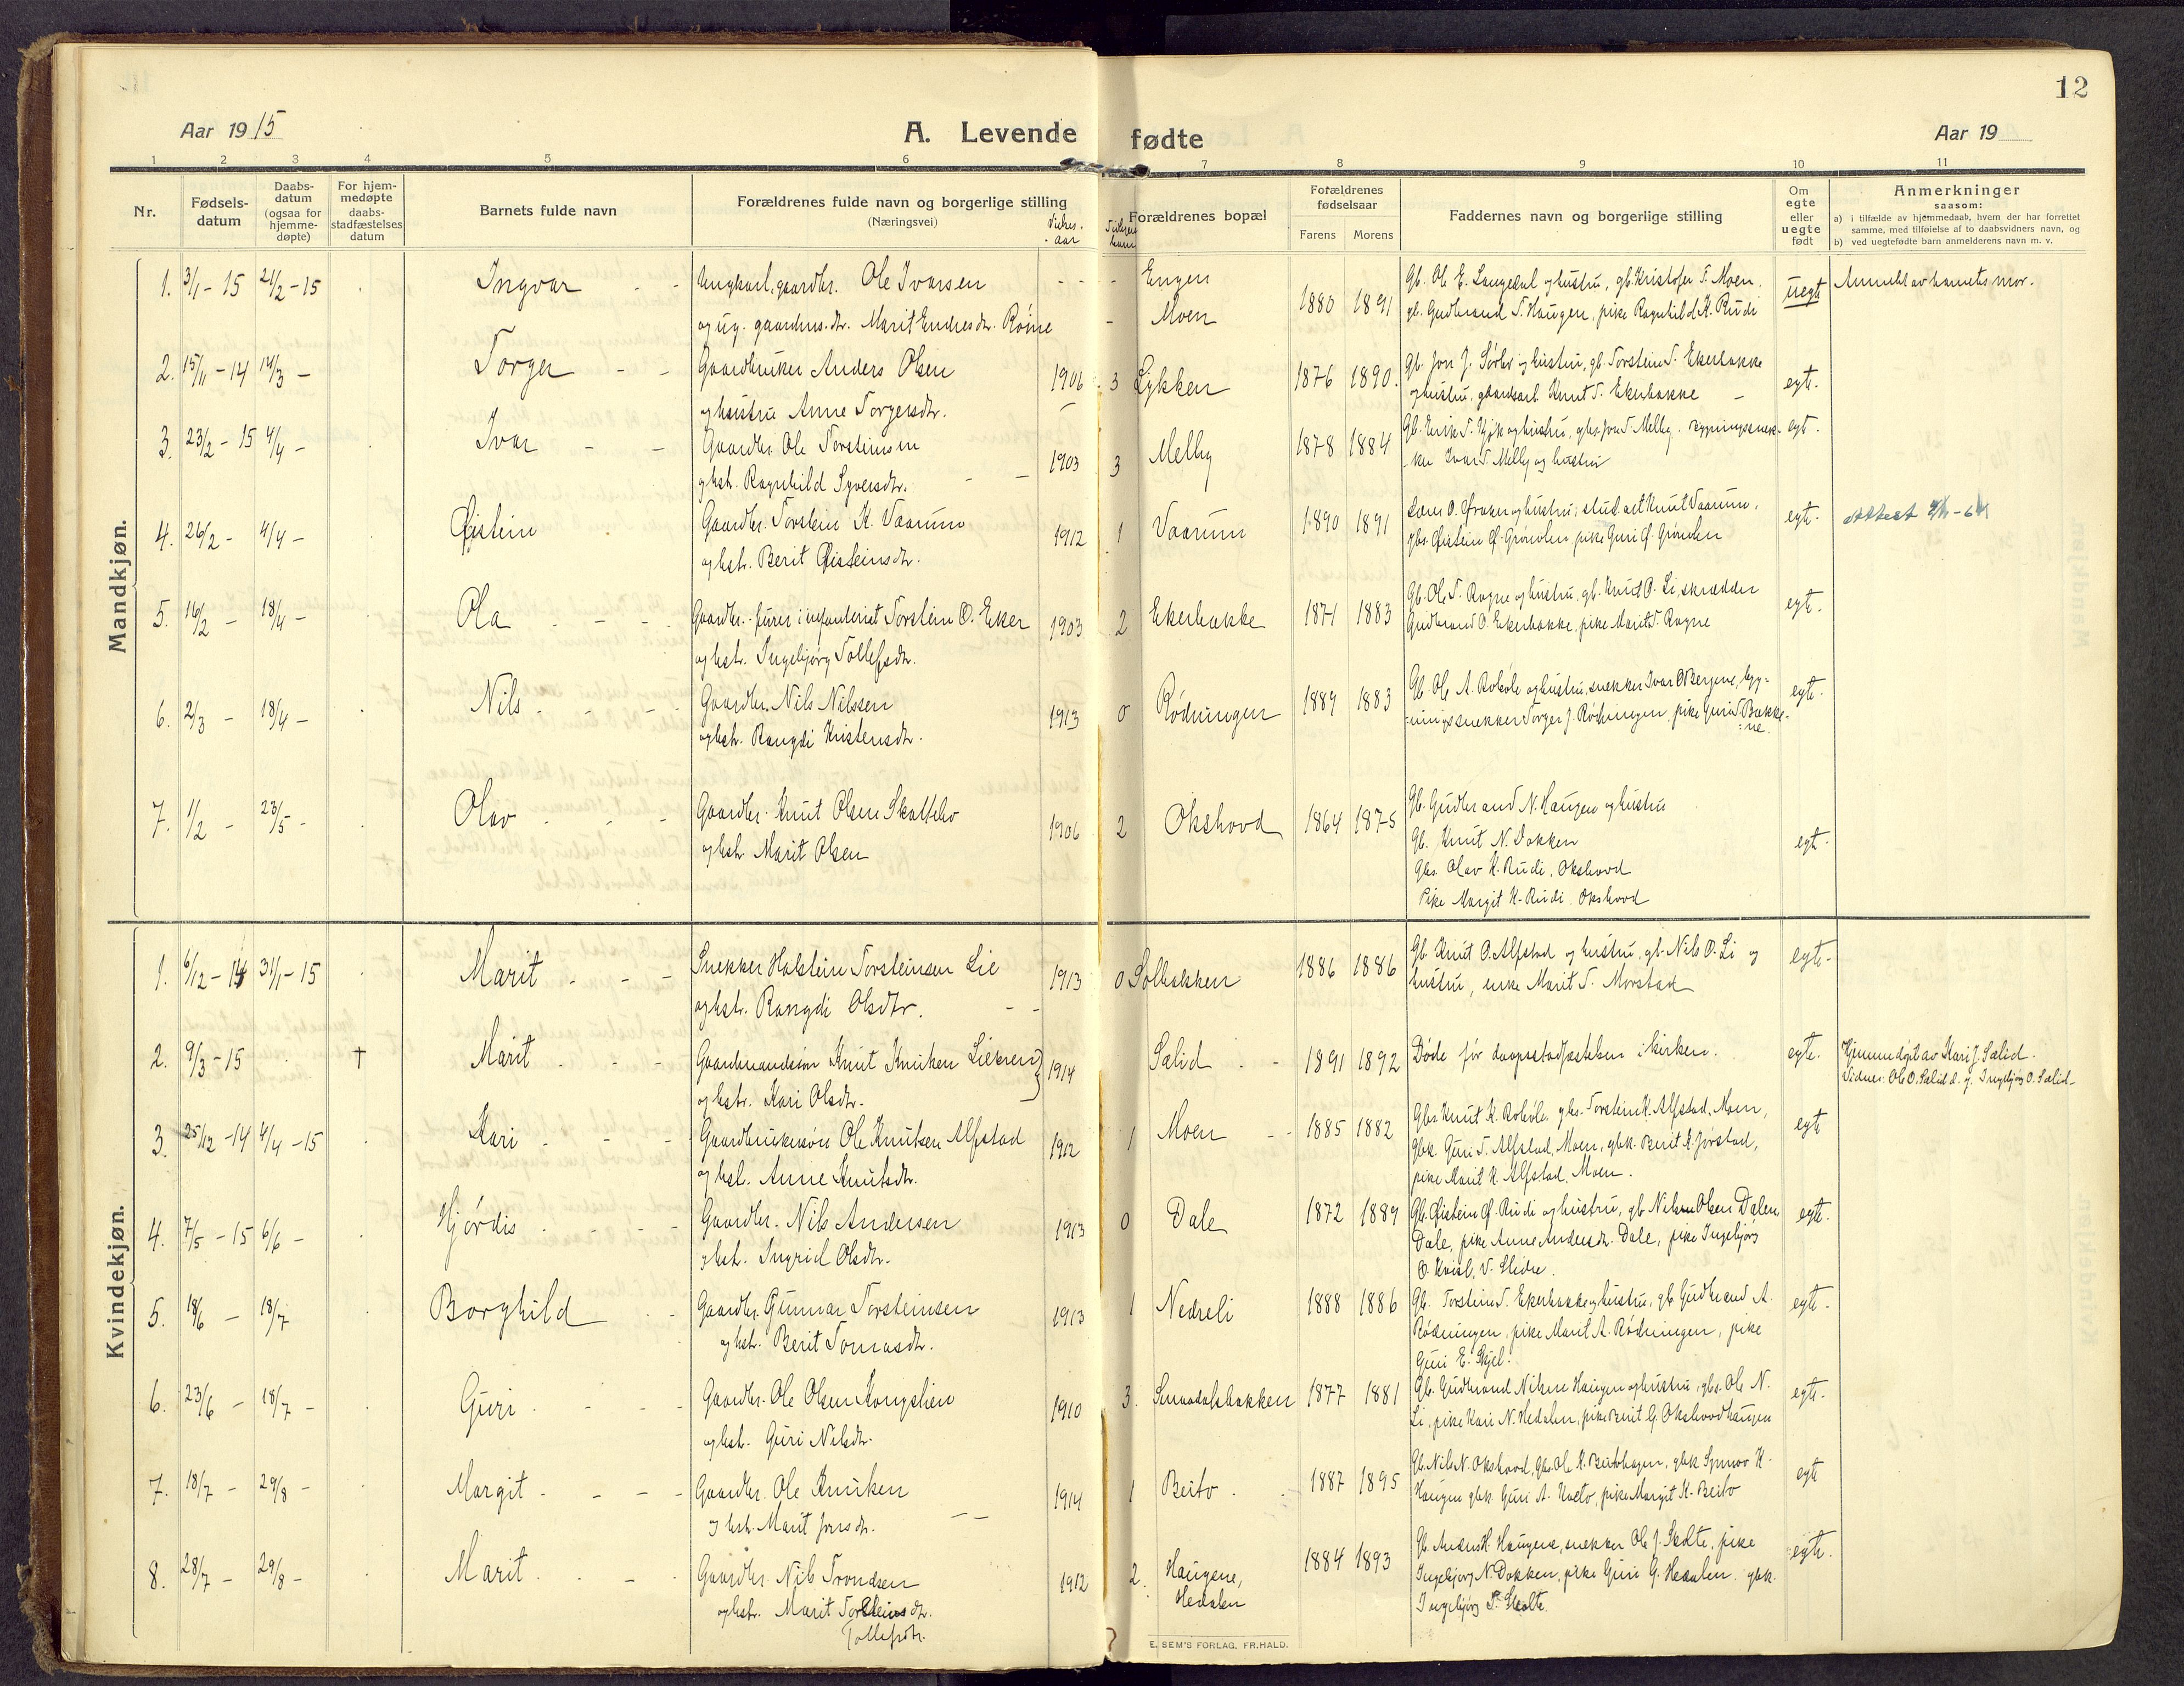 12
Aar 1915
A. Levende fødte
Aar 19
1 2 3 4 5 6 7 8 9 10 11
Nr.
Fødsels-
datum
Daabs-
datum
(ogsaa for
hjemme-
døpte)
For hjem-
medøpte
daabs-
stadfæstelses
datum
Barnets fulde navn
Forældrenes fulde navn og borgerlige stilling
(Næringsvei)
Vielses-
aar
Forældrenes bopæl
Forældrenes
fødselsaar
Farens Morens
Faddernes navn og borgerlige stilling
Om
egte
eller
uegte
født
Anmerkninger
saasom:
a) i tilfælde av hjemmedaab, hvem der har forrettet
samme, med tilføielse af to daabsvidners navn, og
b) ved uegtefødte barn anmelderens navn m. v.
Mandkjøn.
1. 3/1 - 15 21/2 - 15 Ingvar - - Ungkarl, gaardbr. Ole Ivarsen - - - Engen
og ug. gaardbrs. dr. Marit Endresdr. Røine - Moen 1880 1891
Gb. Ole E. Laugedal og hustru, gb. Kristofer T. Moen,
gb. Gudbrand T. Haugen, pike Ragnhild K. Rudi
uegte Anmeldt av barnets mor.
2. 15/11 - 14 14/3 - Torger - - Gaardbruker Anders Olsen
og hustru Anne Torgersdtr. 1906 3 Lykken 1876 1890
Gb. Jon J. Sørbø og hustru, gb. Torstein T. Ekerbakke
og hustru, gaardsarb. Knut T. Ekerbakke egte.
3. 23/2 - 15 4/4 - Ivar - - Gaardbr. Ole Torsteinsen
og hst. Ragnhild Syversdtr. 1903 3 Melby 1878 1884
og hustru, gbs. Jon T. Melby, bygningssnek-
ker Ivar T. Melby og hustru egt.
4. 26/2 - 4/4 - Øistein Gaardbr. Torstein K. Vaarum
og hstr. Berit Øisteinsdtr. 1912 1 Vaarum 1890 1891
og hustru, stud. art Knut Vaarum,
gbs. Øistein Ø. Grønolen, pike Guri Ø. Grønolen egte. Attest
5. 16/2 - 18/4 - Ola - - - Gaardbr. furer i infanteriet Torstein O. Eker
og hstr. Ingebjørg Tollefsdtr. 1903 2 Ekerbakke 1871 1883
Gb. Ole T. Rogne og hustru, gb. Knut O. Li, skrædder
Gudbrand O. Ekerbakke, pike Marit T. Rogne egte.
6. 2/3 - 18/4 - Nils - - - Gaardbr. Nils Nilssen
og hstr. Rangdi Kristensdtr. 1913 0 Rødningen 1889 1883
Gb. Ole A. Robøle og hustru, snekker Ivar O. Bergene, byg-
ningssnekker Torger J. Rødningen, pike Guri T. Bakke-
ne. egte.
7. 1/2 - 23/5 - Olav - - - Gaardbr. Knut Olsen Skattebo
og hstr. Marit Olsen 1906 2 Okshovd 1864 1875
Gb. Gudbrand N. Haugen og hustru
Gb. Knut N. Dokken
Gbs. Olav K. Rudi, Okshovd
Pike Margit K. Rudi, Okshovd egt.
Kvindekjøn.
1. 6/12 - 14 31/1 - 15 Marit - - - Snekker Halstein Torsteinsen Lie
og hstr. Rangdi Olsdtr. 1913 0 Solbakken 1886 1886
Gb. Knut O. Alfstad og hustru, gb. Nils O. Li og
hustru, enke Marit T. Morstad egte.
2. 9/3 - 15 † Marit - - - Gaardmandssøn Knut Knutsen Liekren
og hstr. Kari Olsdtr. 1914 Sælid - - 1891 1892
Døde før daapsstadfæstelsen i kirken. egte. Hjemmedøpt av Kari J. Sælid.
Vidner: Ole O. Sælid d. y. Ingebjørg O. Sælid.
3. 25/12 - 14 4/4 - 15 Kari - - - Gaardbrukersøn Ole Knutsen Alfstad
og hst. Anne Knutsdtr. 1912 1 Moen - - 1885 1882
Gbs. Knut K. Robøle, gbs. Torstein K. Alfstad, Moen,
gbk. Guri T. Alfstad, Moen, gbk. Berit K. Jørstad,
pike Marit K. Alfstad, Moen. egt
4. 7/5 - 15 6/6 - Hjørdis - - - Gaardbr. Nils Andersen
og hst. Ingrid Olsdtr. 1913 0 Dale 1872 1889
Gb. Øistein Ø. Rudi og hustru, gb. Nils Olsen Dalen
Dale, pike Anne Andersdtr. Dale, pike Ingebjørg
O. Kvisl, V. Slidre. egte.
5. 18/6 - 18/7 Borghild - Gaardbr. Gunnar Torsteinsen
og hst. Berit Tomasdtr. 1913 1 Nedreli 1888 1886
Gb. Torstein T. Ekerbakke og hustru, gb. Gudbrand A.
Rødningen, pike Marit A. Rødningen, pike
Guri E. Skjel. egte.
6. 23/6 - 18/7 - Guri - - - Gaardbr. Ole Olsen Kongslien
og hst. Guri Nilsdtr. 1910 3. Smaadalsbakken 1877 1881
Gb. Gudbrand Nilsen Haugen og hustru, gbs. Ole N.
Li, pike Kari N. Hedalen, pike Berit G. Okshovdhaugen egte.
7. 18/7 - 29/8 - Margit - - - Gaardbr. Ole Knutsen
og hst. Marit Jonsdtr. 1914 1 Beito - - 1887 1895
Gb. Nils N. Okshovd, gbs. Ole K. Beitohagen, gbk. Synnøv K.
Haugen gbk. Guri A. pike Margit K. Beito egt
8. 28/7 - 29/8 - Marit - - - Gaardbr. Nils Trondsen
og hst. Marit Torsteinsdtr.
Tollefsdtr. 1912 2. Haugene,
Hedalen 1884 1893
Gb. Anders H. Haugene, snekker Ole J. Skolte, pike
Ingebjørg N. Dokken, pike Guri G. Hedalen, gbk.
Ingebjørg T. Skolte. egte.
E. SEM'S FORLAG, FR.HALD.